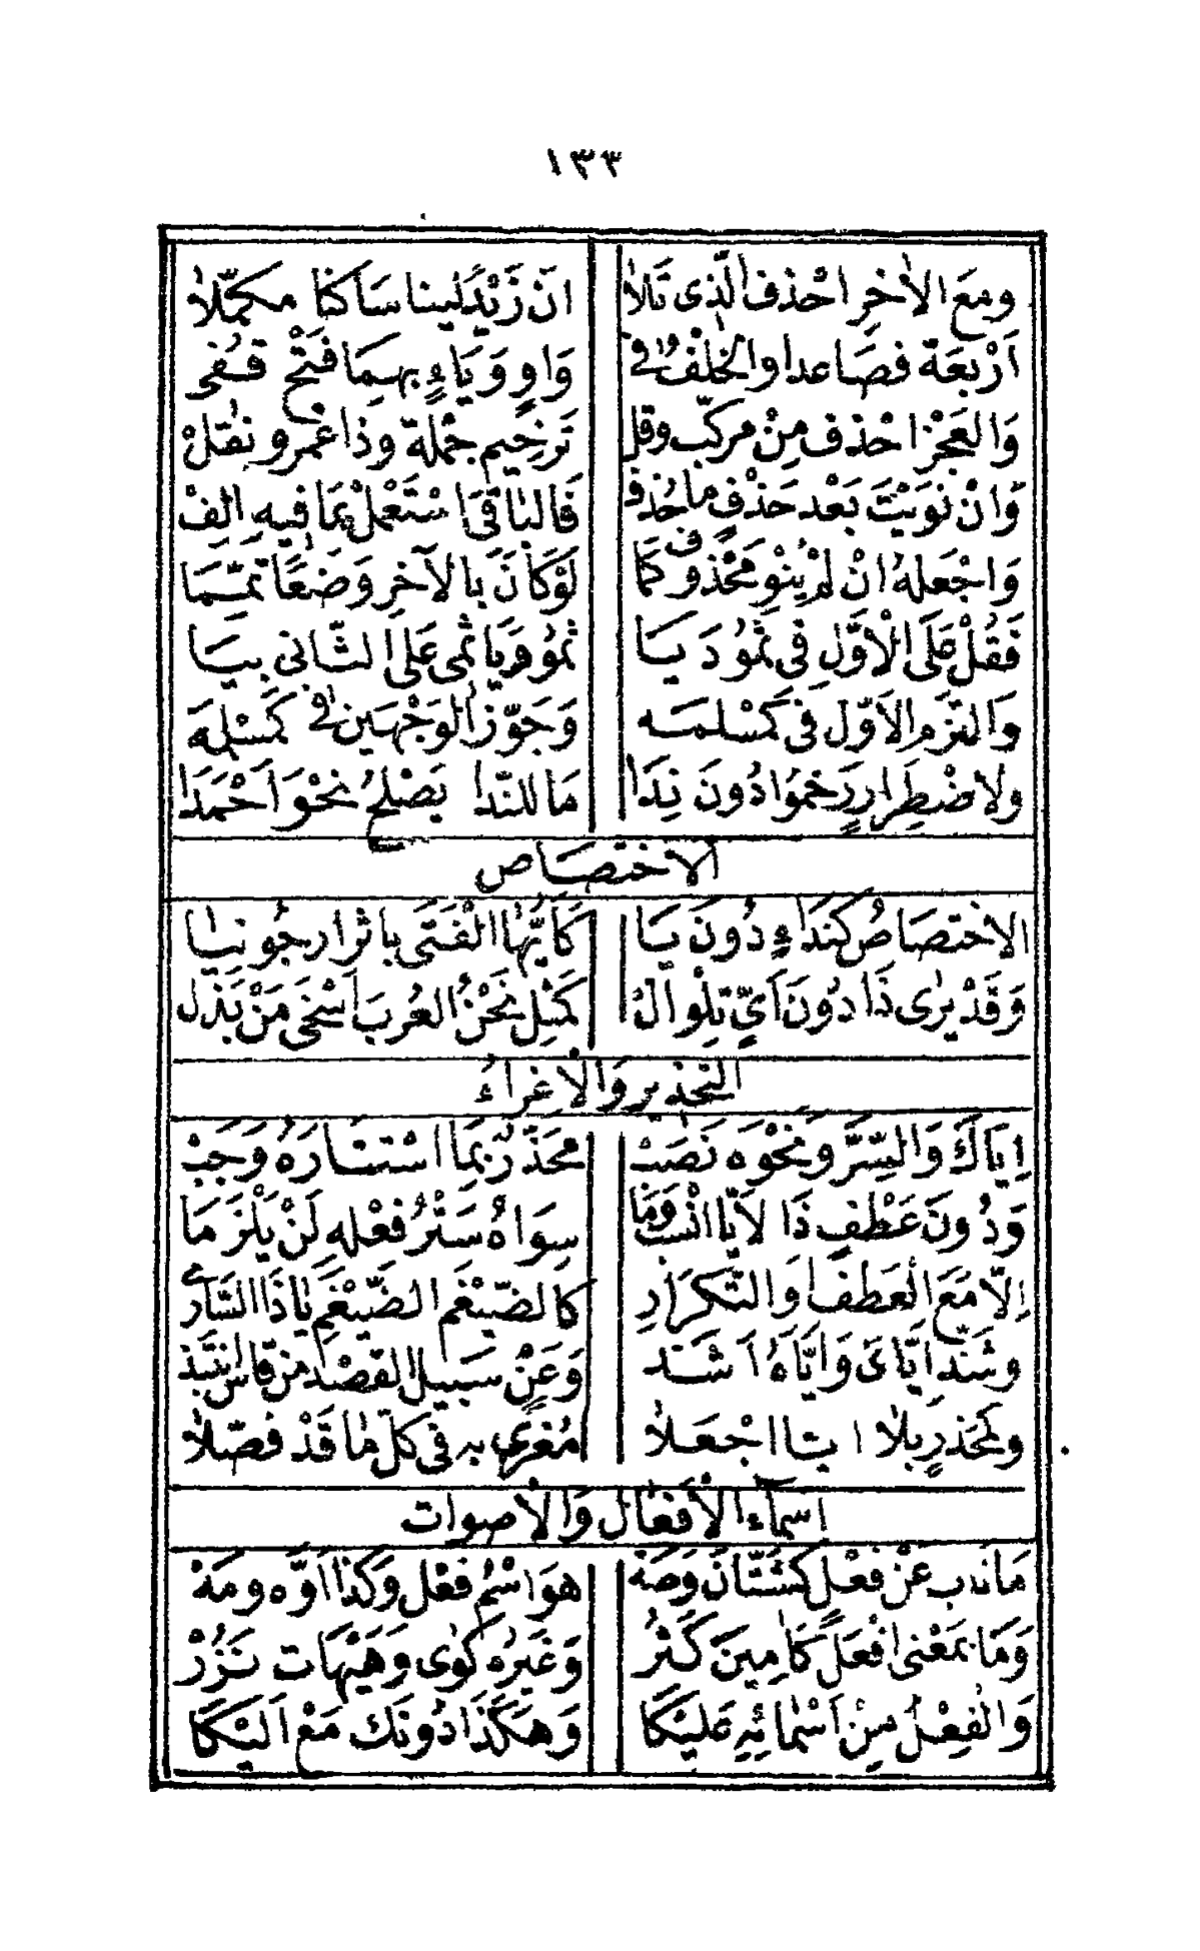 ١٣٣
ومَعَ الاٰخِرِ احْذفِ الَّذى تَلاٰ انْ زَيْدَ لَينا سَاكنًا مكمّلاٰ
اَرْبعَة فصَاعدا والخُلْفُ فى وَاوٍ وَيَاءٍ بهِمَا فَتْح قُفى
وَالعَجْزَ احْذف مِنْ مركّبٍ وقل تَرخيم جمْلة وذَا عَمْرو نقلْ
وَانْ نَوَيْتَ بَعْد حَذْفٍ ما حُذف فَالبَاقىَ اسْتَعْملْ بمَا فيهِ الِفْ
وَاجْعَلهُ انْ لمْ يَنْوِ مَحْذوف كَمَا لَوْ كَانَ بِالآخرِ وَضعًا تمّمَا
فَقُلْ عَلَى الْاَوَّلِ فى ثَمُودَ يَا ثَمُو وَيَا ثمى عَلَى الثّانى بيَا
وَالتزم الاَوّلَ فى كمُسْلمَه وَجَوّز الوَجْهَين فى كمَسْلمَه
ولاضْطِرارٍ رَخمّوُا دُونَ نِدَا مَا للنّدا يَصْلُحُ نحْوَ اَحْمَدَا
الاختصَاص
الاخْتصَاصُ كَندَاءٍ دُونَ يَا كَاَيُّهَا الْفَتَى باثرِ ارجُونيَا
وَقَدْ يرٰى ذَا دُونَ اَىٍّ تِلْوَ اَلْ كَمثلِ نَحْنُ العُربَ اَسْخى مَنْ بَذل
التحْذير وَالْاغْراءُ
اِيّاكَ وَالشَّرَّ وَنحْوَه نَصَبْ محَذّرٌ بمَا اسْتتَارُهُ وَجَبْ
وَدُونَ عَطْفٍ ذَا لاَيّا انْسُبْ وَمَا سِوَاهُ سَتْرُ فعْلهِ لَنْ يَلْزَمَا
اِلّا مَعَ الْعَطفِ اَو التّكرَارِ كالضّيْغَم الضّيْغَمِ يَا ذَا السَّارى
وشَذّ ايّاىَ وَايّاهُ اَشَذ وَعَنْ سَبيل القصْد منْ قاس انتبَذ
وكمُحَذرٍ بلاٰ ايّا اجْعَلاٰ مُغرًى به فى كلّ مٰا قَدْ فصّلاٰ
اسمآءِ الْاَفعَال وَالْاصوات
مَا ناب عَنْ فعْلٍ كَشَتّانَ وَصَهْ هوَ اسْمُ فعْل وَكَذا اَوَّه ومَهْ
وَمَا بمَعْنى افْعَلْ كَآمِينَ كَثُرْ وَغَيرُه كَوَىْ وَهَيْهَات نَزُرْ
وَالفِعْلُ مِنْ اَسْمٰائِهِ عَليْكَا وَهكَذَا دُونَكَ مَعْ اِليْكَا